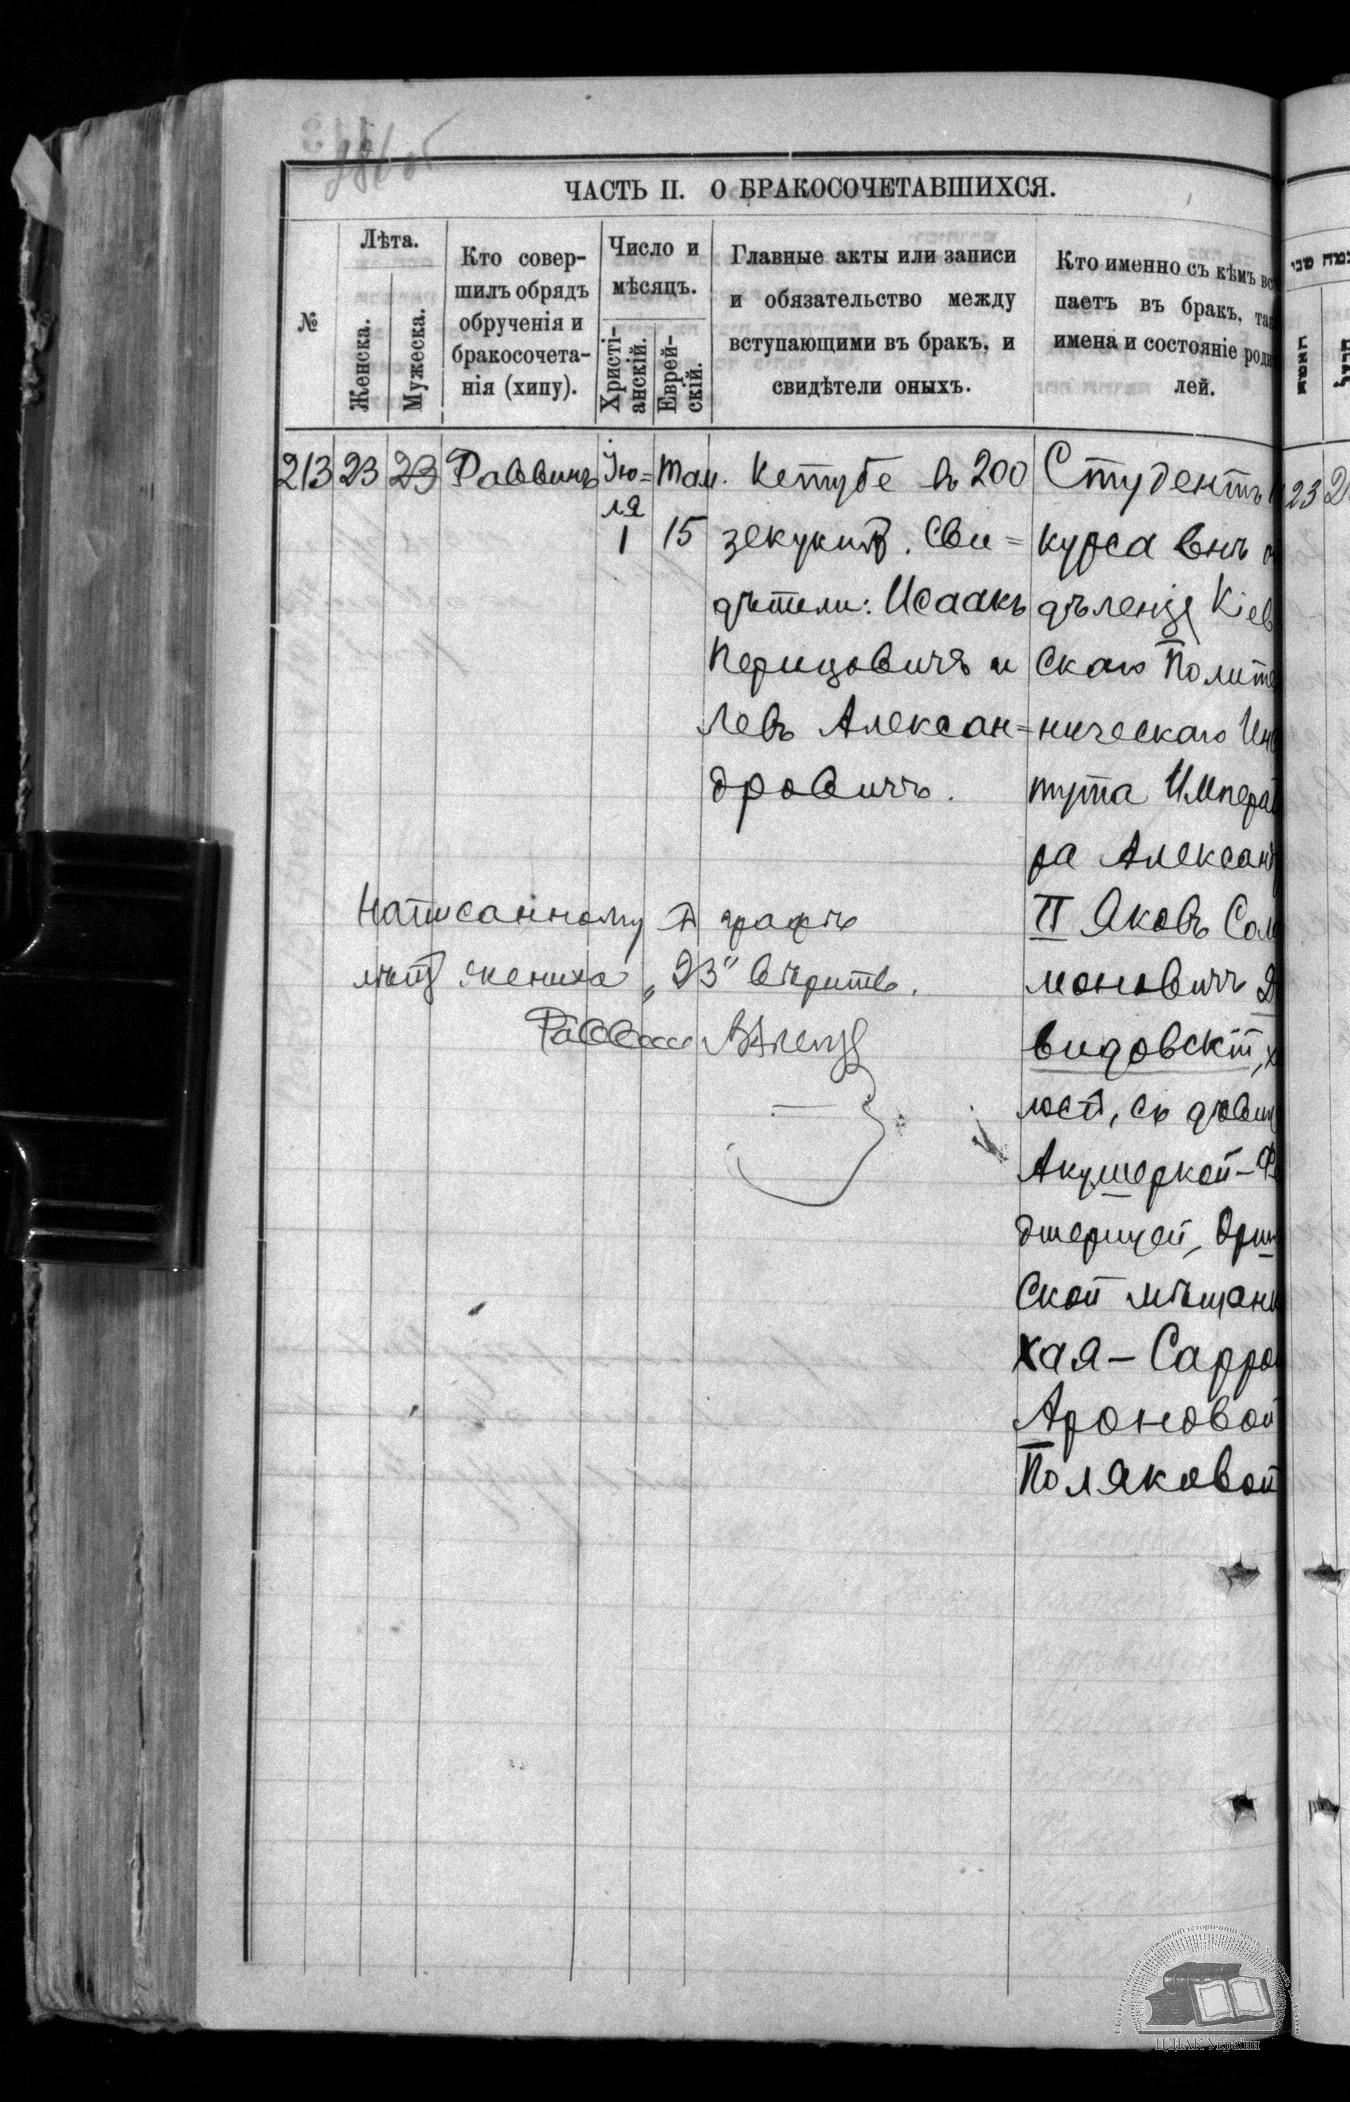 ЧАСТЬ II. О БРАКОСОЧЕТАВШИХСЯ.
№
Лѣта.
Женска.
Мужеска.
Кто совер-
шилъ обрядъ
обрученія и
бракосочета-
нія (хипу).
Число и
мѣсяцъ.
Христі-
анскій.
Еврей-
скій.
Главные акты или записи
и обязательство между
вступающими въ бракъ, и
свидѣтели оныхъ.
Кто именно съ кѣмъ вст
паетъ въ бракъ, так
имена и состояніе роди
лей.
213 23 23 Раввинъ Ию=
ля
1
Там.
15
Кетубе въ 200
зекукимъ. Сви=
дѣтели: Исаакъ
Перицовичъ и
Левъ Алексан=
дровичъ.
Студентъ
курса внъ о
дѣленія Кіев
скаго Полите
ническаго Инс
тута Императ
ра Александ
II Яковъ Соло
моновичъ Д
видовскій, х
лостъ, съ дѣвиц
Акушеркой-Фе
дшерицей, Орш
ской мѣщанк
Хая-Саррой
Ароновой
Поляковой
Написанному въ графѣ
лѣтъ жениха „23" вѣрить.
Раввинъ
23
ЦДІАК України